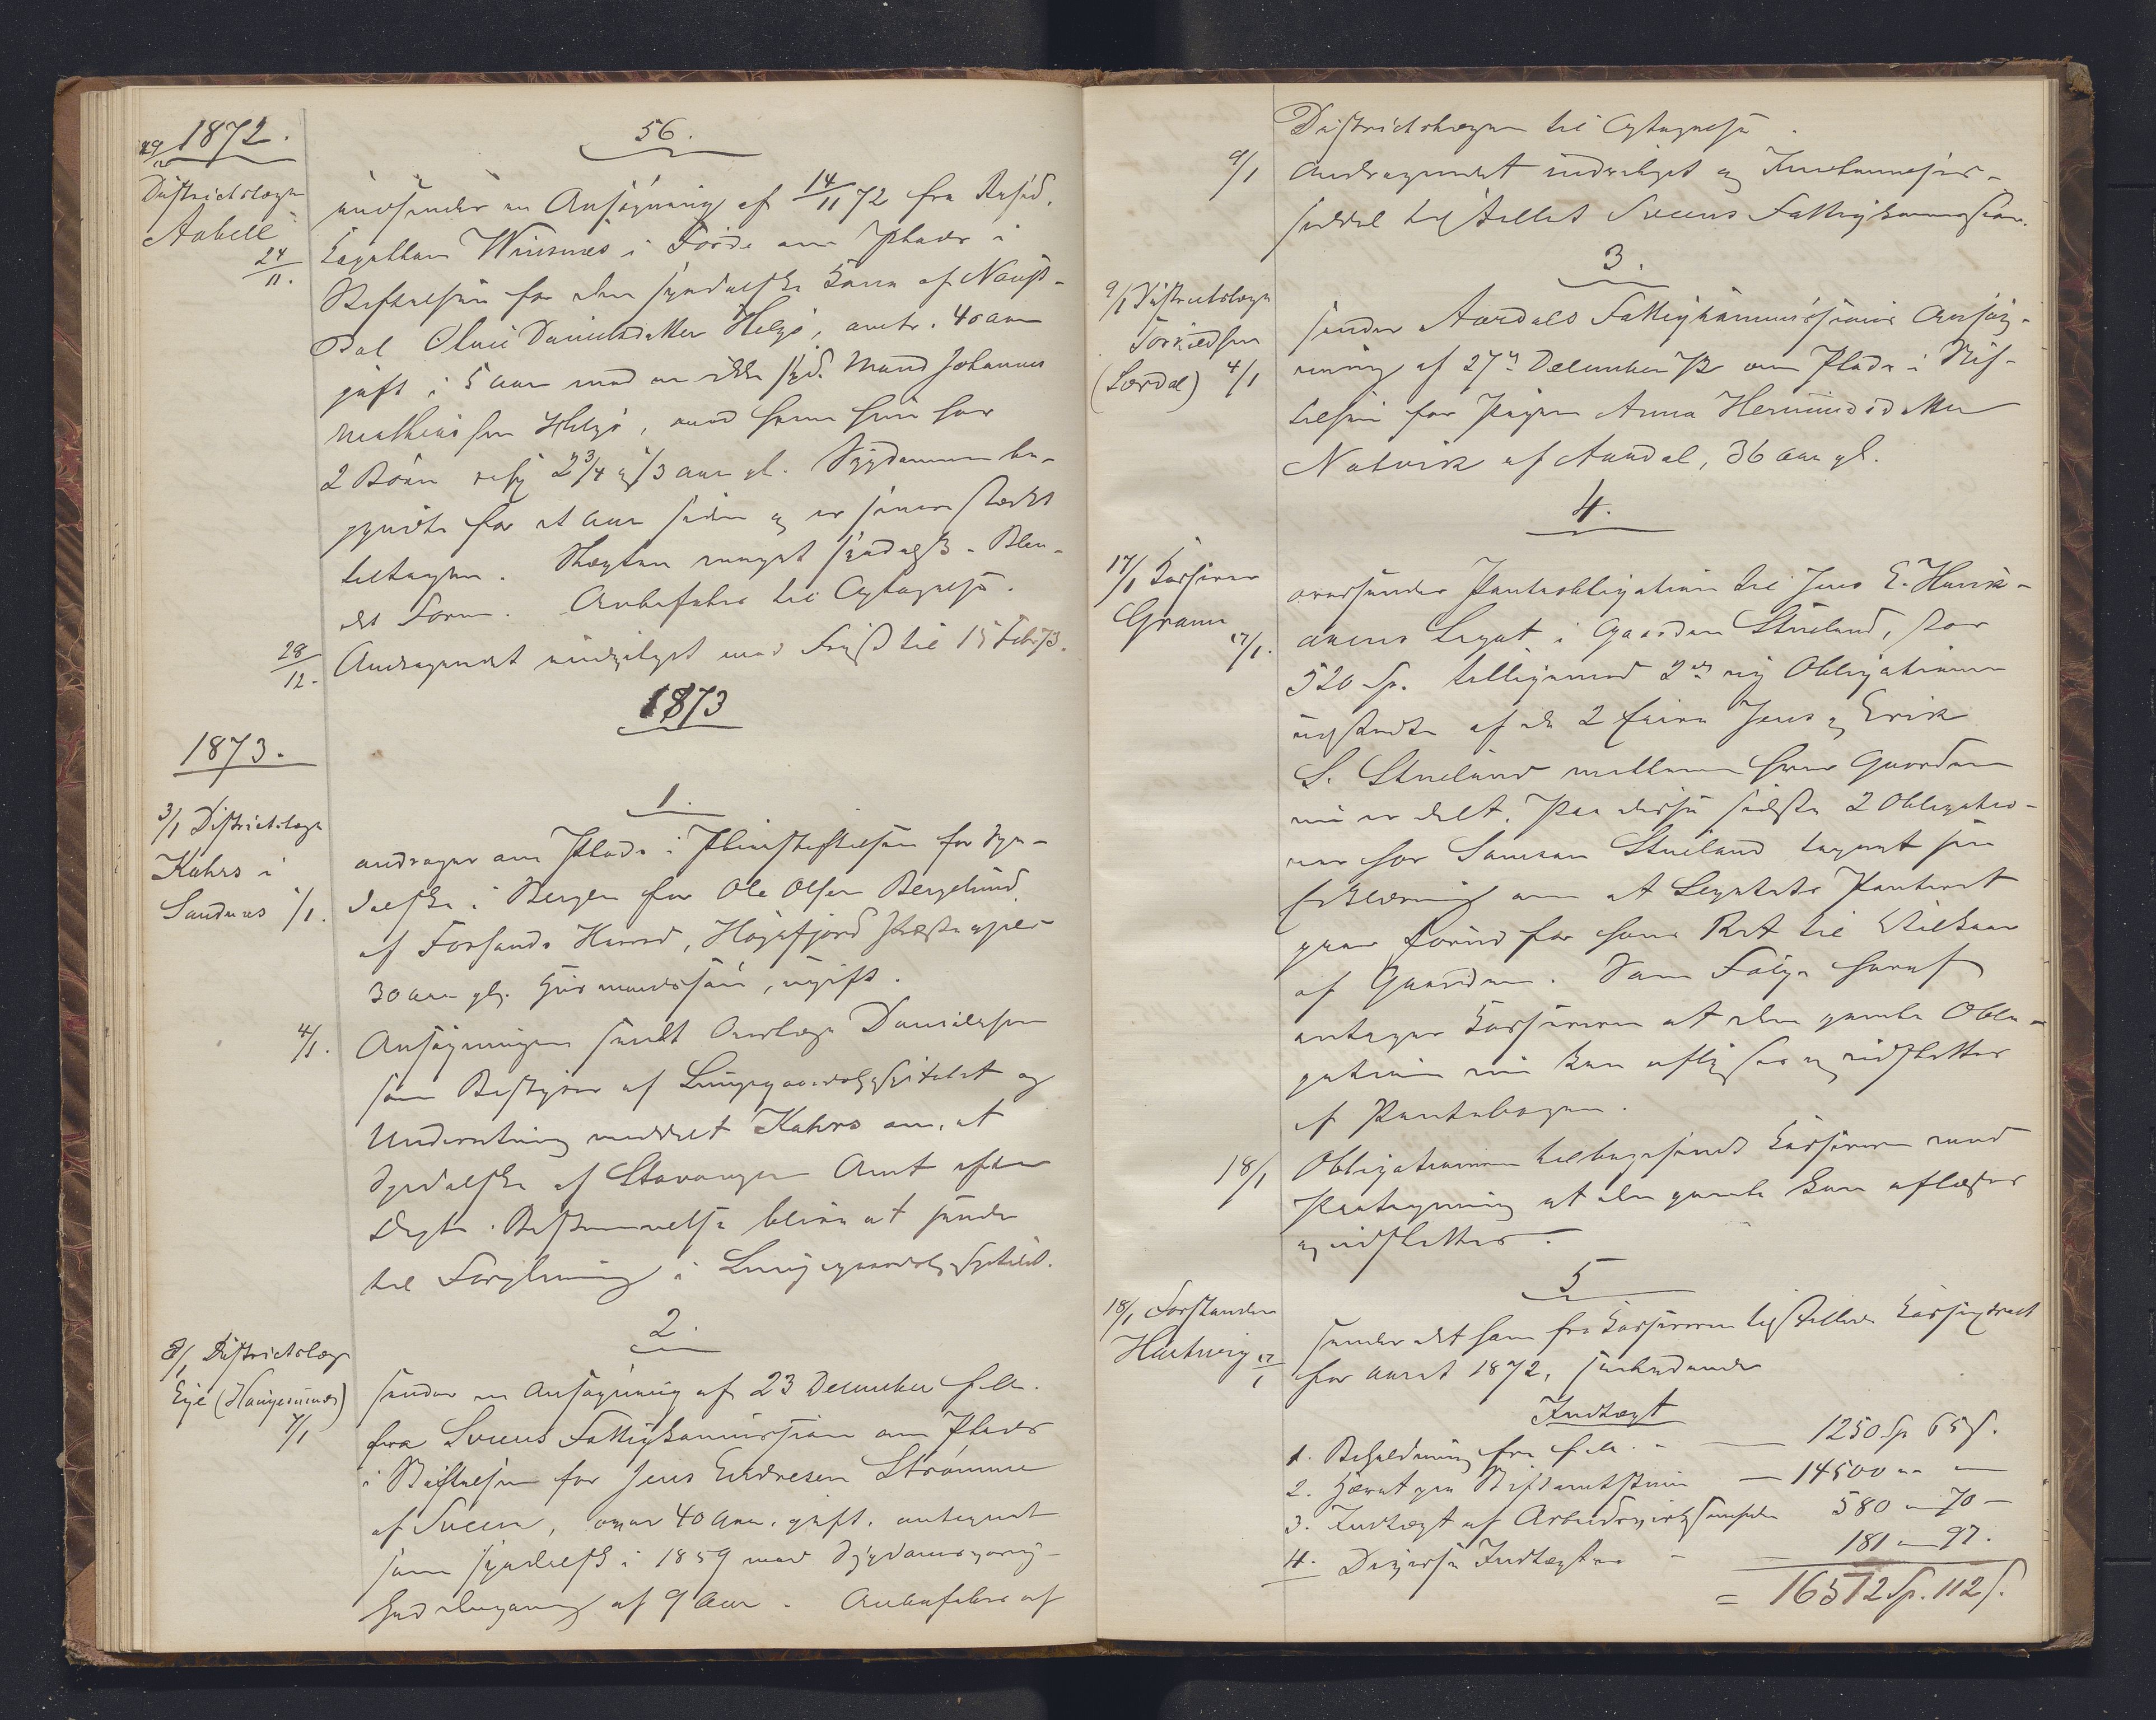 1872.
29/11
Districtslæge
Aabell
24/11.
56.
indsender en Ansøgning af 14/11 72 fra Resid.
Capellan Winsnes i Førde om Plads i
Stiftelsen for den spedalske Kone af Naust-
dal Oline Danielsdatter Helgø, omtr. 40 Aar
gift i 5 Aar med en ikke sped. Mand Johannes
Mathiassen Helgø, med hvem hun har
2 Børn resp 2 3/4 og 1/3 Aar gl. Sygdommen be-
gyndte for et Aar siden og er senere stærkt
tiltagen. Slægten meget spedalsk. Blan-
det Form. Anbefales til Optagelse.
28/12. Andragendet indvilget med Frist til 15 Febr 73.
1873
1873.
1.
3/1 Districtslæge
Kahrs i
Sandnes 1/1.
andrager om Plads i Pleiestiftelsen for Spe-
dalske i Bergen for Ole Olsen Bergelund
af Forsands Herred, Høgsfjord Præstegjeld
30 Aar gl. Huusmandssøn, ugift.
4/1. Ansøgningen sendt Overlæge Danielssen
som Bestyrer af Lungegaardshospitalet og
Underretning meddelt Kahrs om, at
Spedalske af Stavanger Amt efter
Dept. Bestemmelse bliver at sende
til Forpleining i Lungegaardshospitalet.
2.
8/1 Districtslæge
Eje (Haugesund)
7/1
sender en Ansøgning af 23 December f. A.
fra Sveens Fattigkommission om Plads
i Stiftelsen for Jens Endresen Strømme
af Sveen, over 40 Aar, gift, antegnet
som spedalsk i 1859 med Sygdomsvarig-
hed dengang af 9 Aar. Anbefales af
Districtslægen til Optagelse.
9/1 Andragendet indvilget og Indlæmmelses-
seddel tilstillet Sveens Fattigkommission.
3.
9/1 Districtslæge
Torkildsen
(Lærdal) 4/1
sender Aardals Fattigkommissions Ansøg-
ning af 27de December 72 om Plads i Stif-
telsen for Pigen Anna Hermundsdatter
Natvik af Aardal, 36 Aar gl.
4.
17/1 Kasserer
Gram
17/1.
oversender Panteobligation til Jens E. Henrik-
sens Legat i Gaarden Stueland, stor
520 Sp. tilligemed 2de ny Obligationer
udstedte af de 2 Eiere Jens og Erik
S. Stueland mellem hvem Gaarden
nu er delt. Paa disse sidste 2 Obligatio-
ner har Samson Stueland tegnet sin
Erklæring om at Legatets Panteret
gaar forud for hans Ret til Vilkaar
af Gaarden. Som Følge heraf
antager Kassereren at den gamle Obli-
gation nu kan aflyses og udslettes
af Pantebogen.
18/1 Obligationerne tilbagesendt Kassereren med
Paategning at den gamle kan aflæses
og udslettes.
5
18/1 Forstander
Hartwig 17/1
sender det ham fra Kassereren tilstillede Kasseextract
for Aaret 1872, indeholdende
Indtægt
1. Beholdning fra f. A. - — 1250 Sp 65 s.
2. Hævet paa Stiftamtstuen — 14500 " "—
3. Indtægt af Arbeidsvirksomheden 580 " 70 —
4. Diverse Indtægter - — 181 " 97.
= 16512 Sp. 112 s.